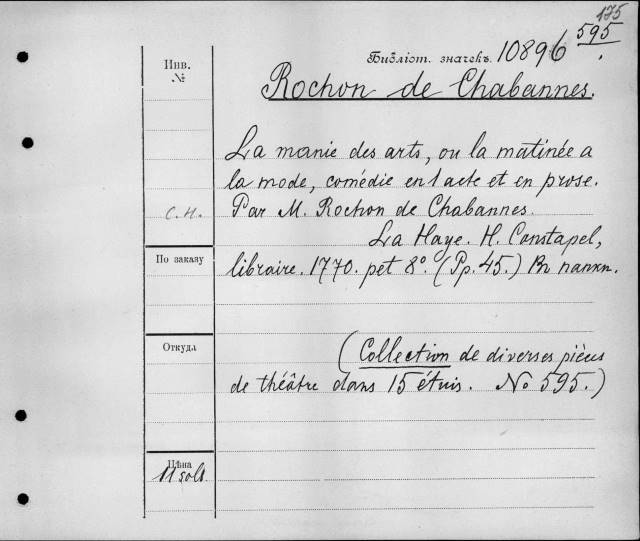 175
595
Инв. №
Библіот. значекъ. 10896
Rochon de Chabannes.
La manie des arts, ou la matinée a
la mode, comédie en 1 acte et en prose.
С.Н.
Par M. Rochon de Chabannes.
La Haye. H. Constapel,
По заказу
libraire. 1770. pet 8°. (Pp. 45.) Въ папкѣ.
Откуда
(Collection de diverses pièces
de théâtre dans 15 étuis. No 595.)
Цѣна